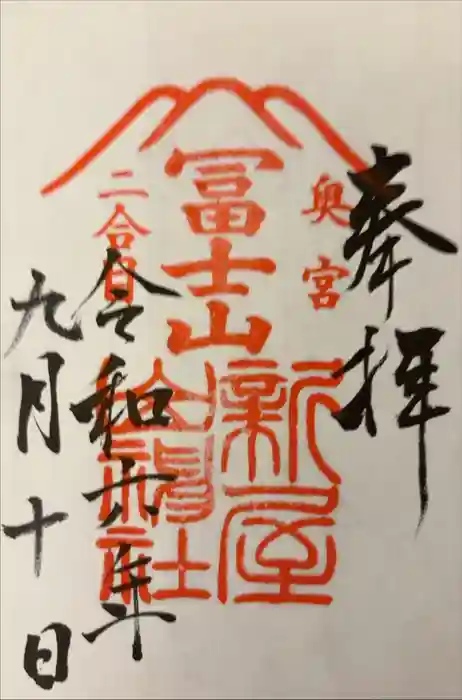 奉拝
奥宮
冨士山
二合目
新屋
山神社
令和六年
九月十日